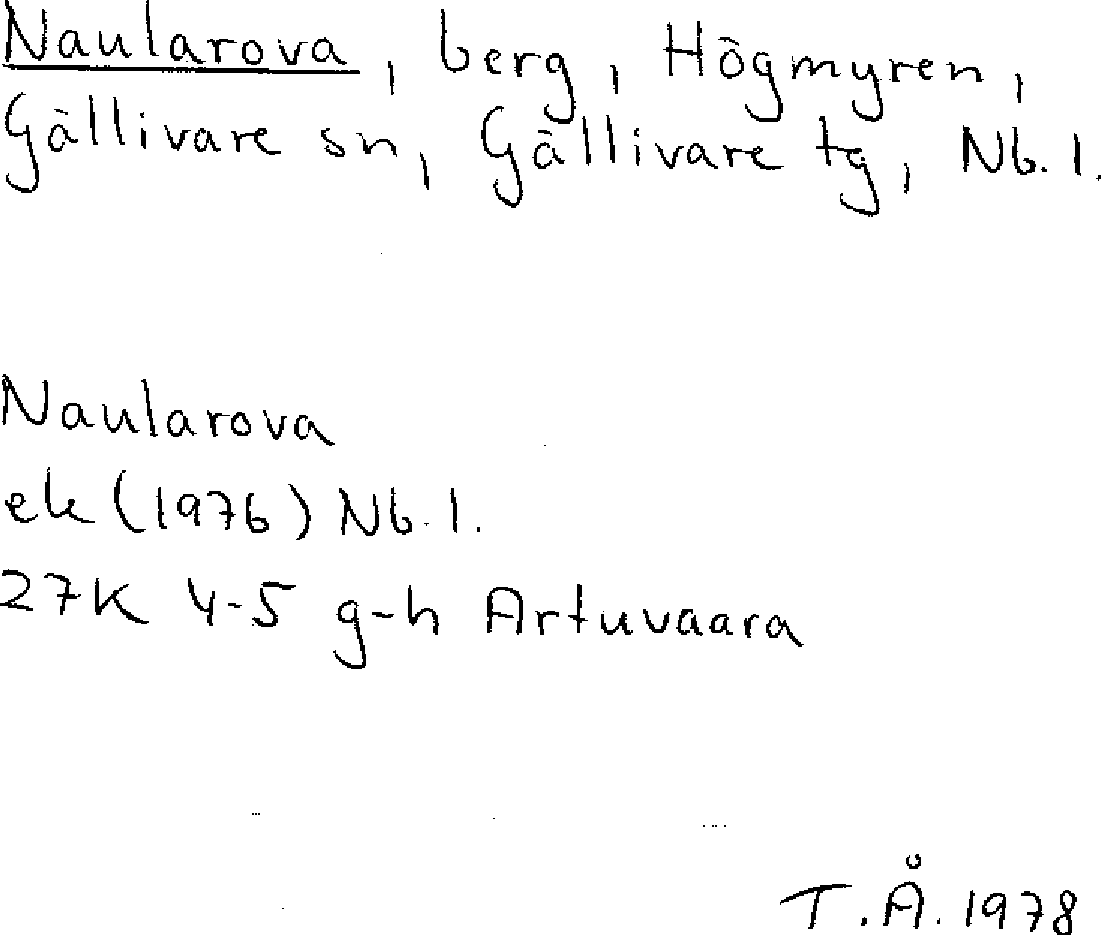 Naularova, berg, Högmyren,
Gällivare sn, Gällivare tg, Nb. l.
Naularova
ek (1976) Nb. l.
27K 4-5 g-h Artuvaara
T.Å. 1978